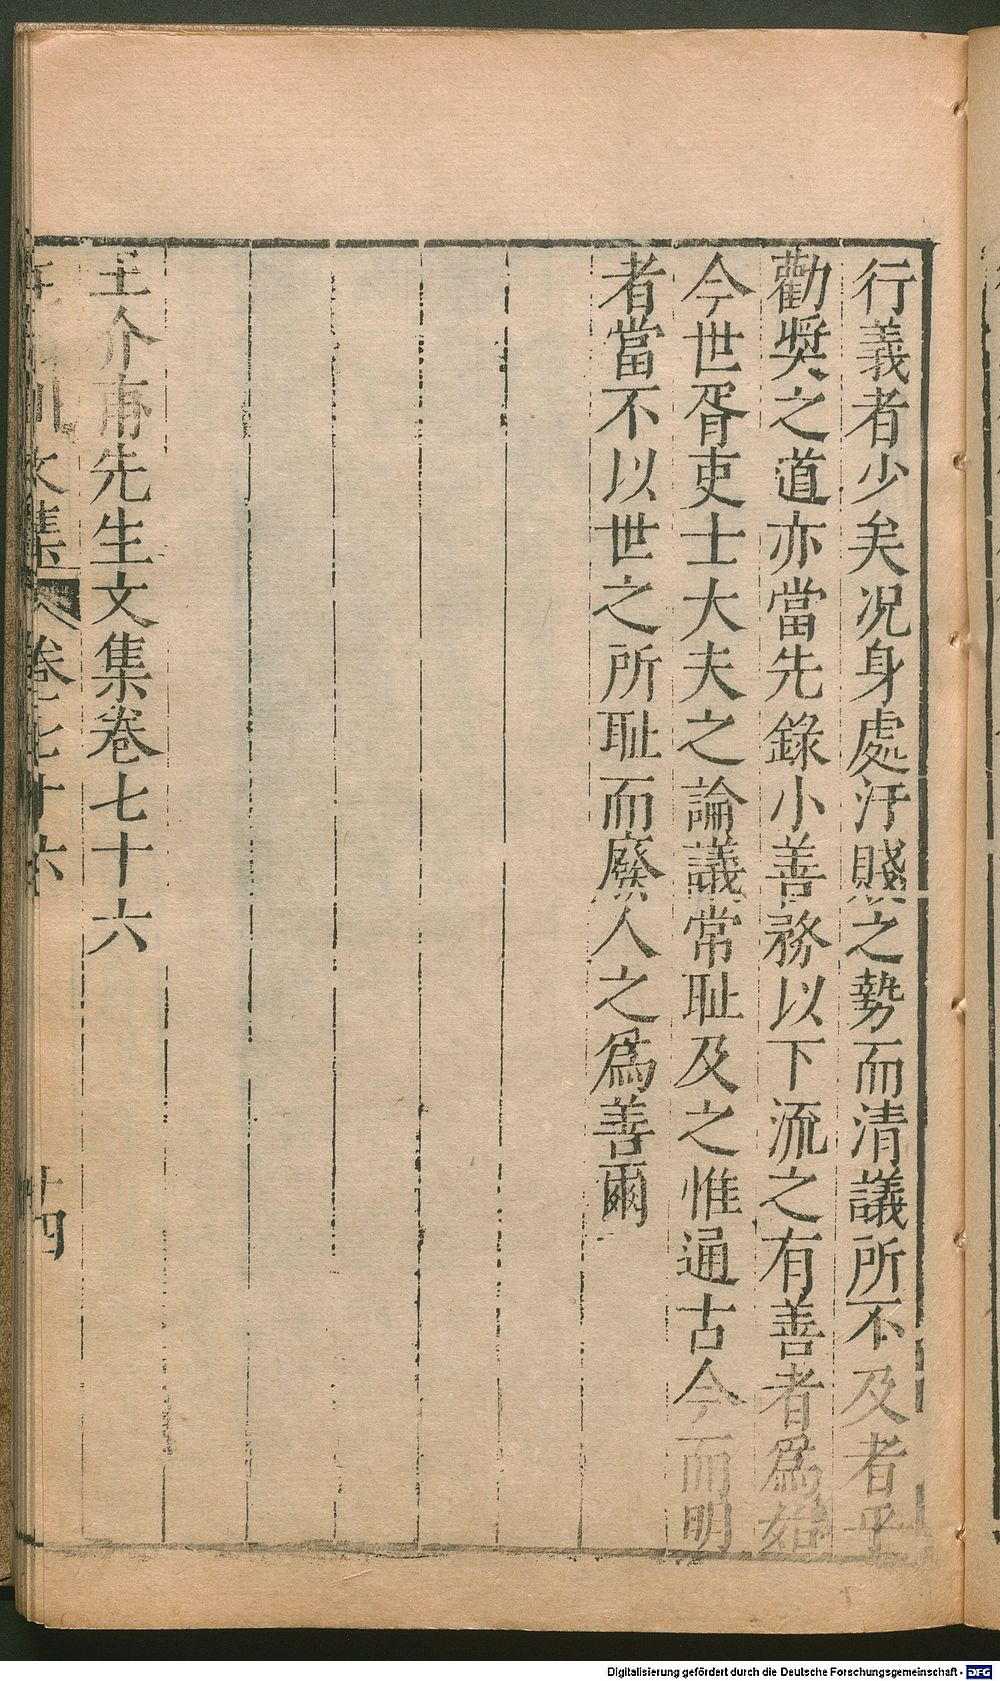 行義者少矣况身處汙賤之勢而清議所不及者乎
勸奨之道亦當先錄小善務以下流之有善者爲始
今世胥吏士大夫之論議常耻及之惟通古今而明
者當不以世之所耻而廢人之爲善爾
王介甫先生文集卷七十六
文集 卷七十六 廿四
Digitalisierung gefördert durch die Deutsche Forschungsgemeinschaft - DFG